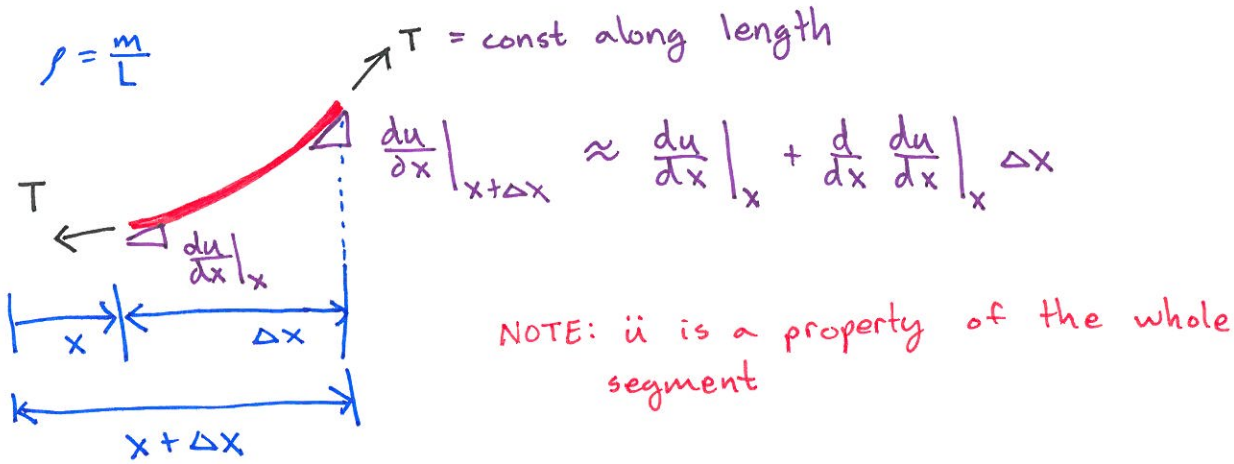 ρ = m/L
T = const along length
du/∂x|x+Δx ≈ du/dx|x + d/dx du/dx|x Δx
T
du/dx|x
x
Δx
NOTE: ü is a property of the whole
segment
x + Δx